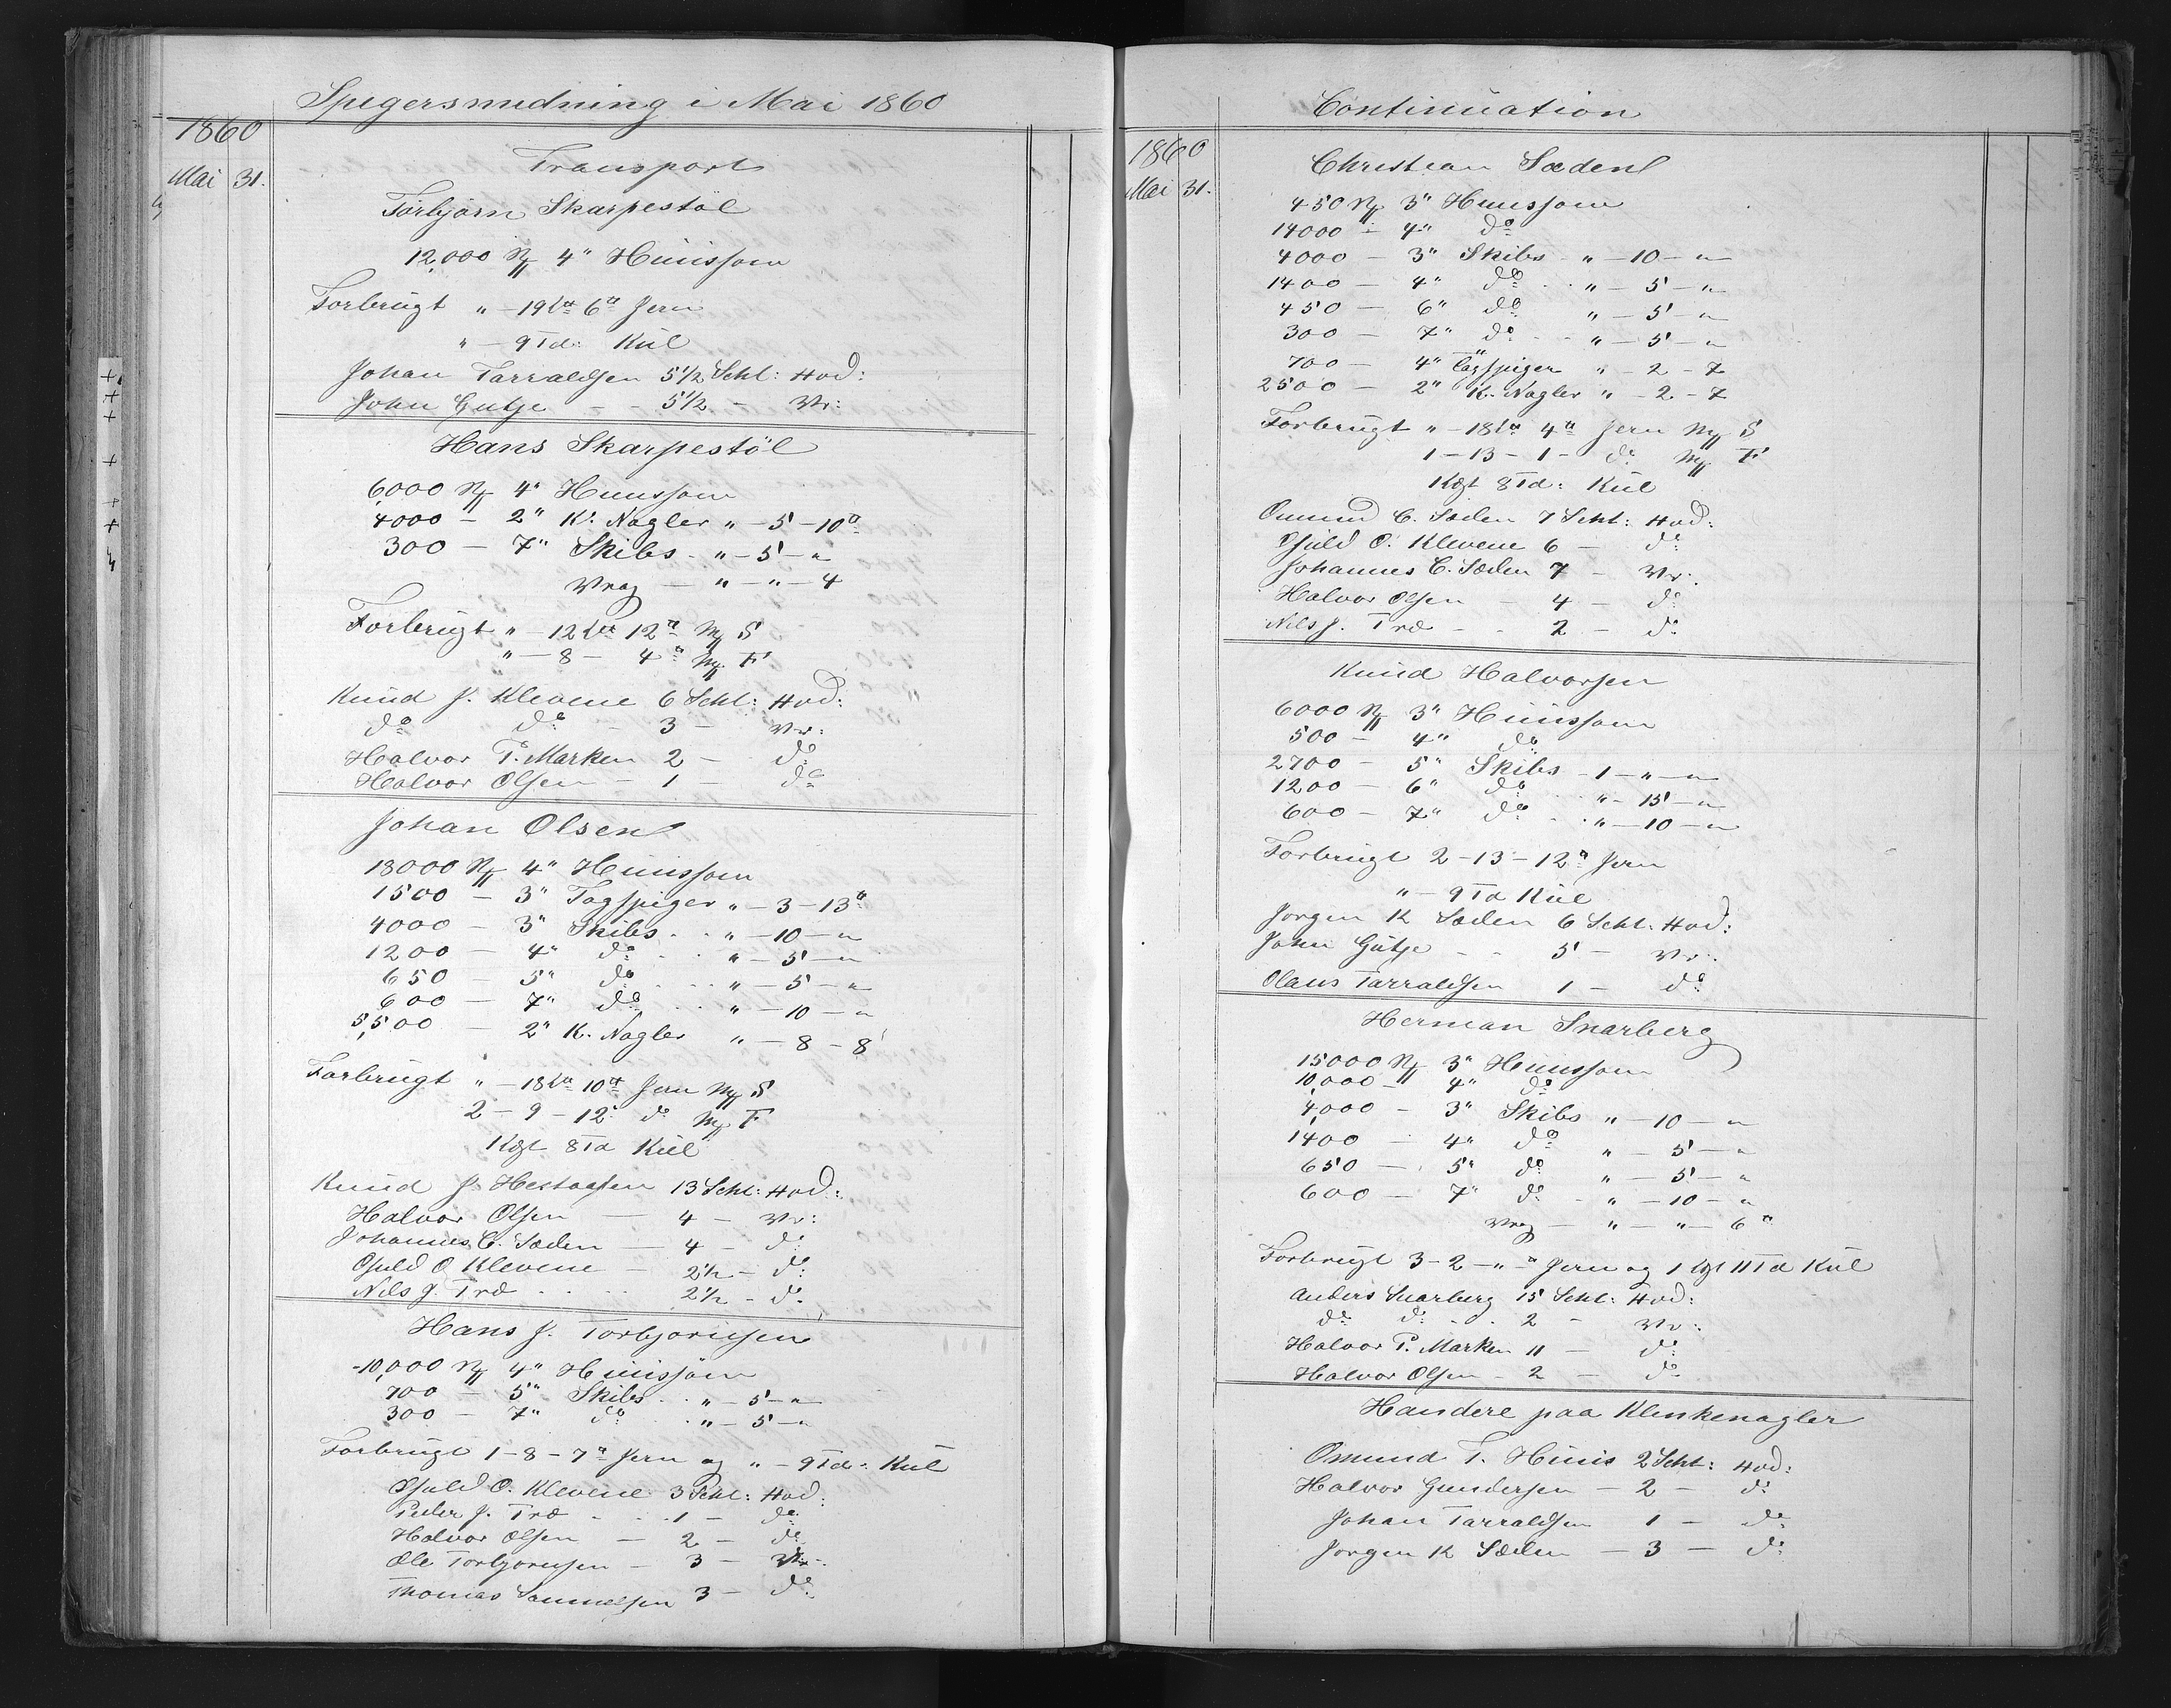 Spigersmedning i Mai 1860
1860
Mai 31.
Transport
Torbjørn Skarpestøl
12,000 N 4" Huussøm
Forbrugt " - 19 L℔ 6 ℔ Jern
" - 9 Td: Kul
Johan Tarraldsen 5 1/2 Scht: Hvd:
John Gutje - - 5 1/2 - Vr:
Hans Skarpestöl
6,000 N 4" Huussøm
4000 - 2" Kl. Nagler " - 5 - 10 ℔
300 - 7" Skibs - " - 5 - "
Vrag - " - " - 4
Forbrugt " - 12 L℔ 12 ℔ M S
" - 8 - 4 ℔ M F
Knud J. Klevene 6 Scht: Hvd:
do do - 3 - Vr:
Halvor T. Marken 2 - do
Halvor Olsen - 1 - do
Johan Olsen
13000 N 4" Huussøm
1500 - 3" Tagspiger " - 3 - 13 ℔
4000 - 3" Skibs . . " - 10 - "
1200 - 4" do . . " - 5 - "
650 - 5" do . . . " - 5 - "
600 - 7" do . . " - 10 - "
5,500 - 2" K. Nagler " - 8 - 8
Forbrugt " - 18 L℔ 10 ℔ Jern M S
2 - 9 - 12 do M F
1 Lgt 8 Td Kul
Knud J. Hestaasen 13 Scht: Hvd:
Halvor Olsen - 4 - Vr:
Johannes C. Sæden - 4 - do
Osuld O Klevene - 2 1/2 - do
Nils J. Træ . . . . 2 1/2 - do
Hans J. Torbjørnsen
10,000 N 4" Huussøm
700 - 5" Skibs . . " - 5 - "
300 - 7" do . . " - 5 - "
Forbrugt 1 - 8 - 7 ℔ Jern og " - 9 Td: Kul
Osuld O. Klevene 3 Scht: Hvd:
Peder J. Træ . . . 1 - do
Halvor Olsen - 2 - do
Ole Torbjørnsen - 3 - Vr:
Thomas Samuelsen 3 - do
Continuation
1860
Mai 31.
Christian Sæden
450 N 3" Huussøm
14000 - 4" do
4000 - 3" Skibs - " - 10 - "
1400 - 4" do . . " - 5 - "
450 - 6" do " - 5 - "
300 - 7" do . . " - 5 - "
700 - 4" Tagspiger " - 2 - 7
2500 - 2" K. Nagler " - 2 - 7
Forbrugt " - 18 L℔ 4 ℔ Jern M S
1 - 13 - 1 - do M F
1 Lgt 8 Td: Kul
Osmund C. Sæden 7 Scht: Hvd:
Osuld O. Klevene 6 - do
Johannes C. Sæden 7 - Vr:
Halvor Olsen - 4 - do
Nils J. Træ - . 2 - do
Knud Halvorsen
6000 N 3" Huussøm
500 - 4" do
2700 - 5" Skibs - 1 - " - "
1200 - 6" do . . " - 15 - "
600 - 7" do . . " - 10 - "
Forbrugt 2 - 13 - 12 ℔ Jern
" - 9 Td Kul
Jørgen K Sæden 6 Scht. Hvd:
John Gutje - - 5 - Vr:
Olaus Tarraldsen 1 - do
Herman Snarberg
15000 N 3" Huussøm
10,000 - 4" do
4,000 - 3" Skibs " - 10 - "
1400 - 4" do " - 5 - "
650 - 5" do " - 5 - "
600 - 7" do - " - 10 - "
Vrag - " - " - 6 ℔
Forbrugt 3 - 2 - " - Jern og 1 Lgt 11 Td Kul
Anders Snarberg 15 Scht: Hvd:
do do . . . 2 - Vr:
Halvor T. Marken 11 - do
Halvor Olsen - 2 - do
Haandere paa Klinkenagler
Osmund T. Huus 2 Scht: Hvd:
Halvor Gundersen - 2 - do
Johan Tarraldsen 1 - do
Jørgen K Sæden - 3 - do